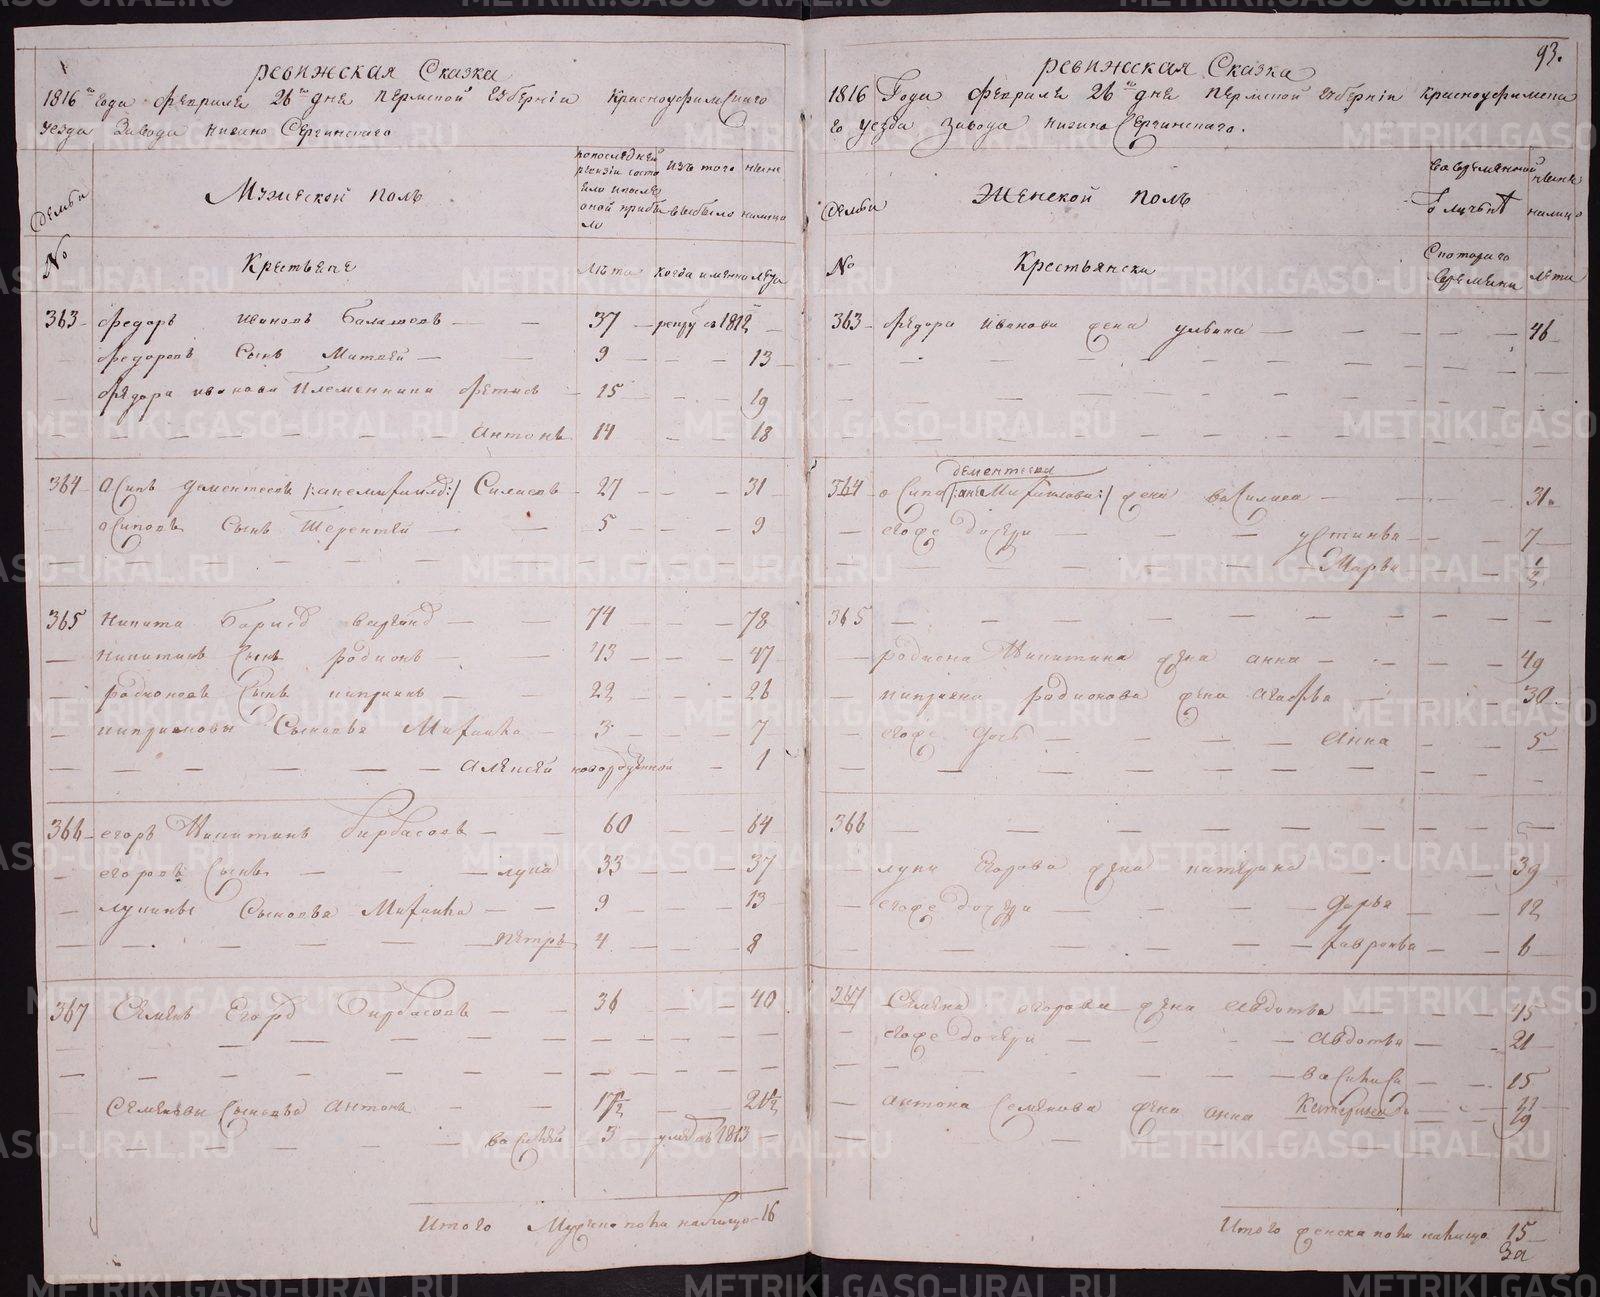 ревижская Сказка
1816 го года февраля 26 го дня пермской губерніи красноуфимскаго
уезда Завода нижно Сергинскаго
Семьи
Мужеской полъ
по последней ревизіи состояло и после оной прибыло
изъ того выбыло
ныне налицо
No
Крестьяне
лета
когда именно
лета
363 федоръ ивановъ Балашовъ 37 рекру въ 1812
федоровъ Сынъ Матвей 9 13
федора иванова Племянники фетисъ 15 19
антонъ 14 18
364 осипъ дементеевъ /:анемихайлъ:/ Силиевъ 27 31
осиповъ Сынъ Терентей 5 9
365 никита 74 78
никитинъ Сынъ родионъ 43 47
родионовъ Сынъ киприянъ 22 26
киприяновы Сыновья Михайло 3 7
алексей новорожденной 1
366 егоръ Никитинъ Бирбасовъ 60 64
егоровъ Сынъ лука 33 37
лукины Сыновья Михайло 9 13
петръ 4 8
367 Семенъ Егоръ Бирбасовъ 36 40
Семеновы Сыновья антонъ 17 1/2 21 1/2
василей 5 умре въ 1813
Итого Мужска пола налицо 16
93.
ревижская Сказка
1816 Года февраля 26 го дня пермской губерніи красноуфимска
го уезда завода нижно Сергинскаго.
семьи
Женской полъ
во временной отлучке
ныне налицо
No
Крестьянски
С котораго времени
лета
363 федора иванова жена ульяна 46
дементеева
364 осипа /:ане Михайлова:/ жена василиса 31
егоже дочери устинья 7
Марья 1/2
365
родиона Никитина жена анна 49
киприяна родионова жена агафья 30
егоже дочь анна 5
366
луки Егорова жена катерина 39
егоже дочери дарья 12
хавронья 6
367 Семена егорова жена авдотья 45
егоже дочери авдотья 21
василиса 15
Катерина 11
антона Семенова жена анна 19
Итого женска пола налицо 15
За